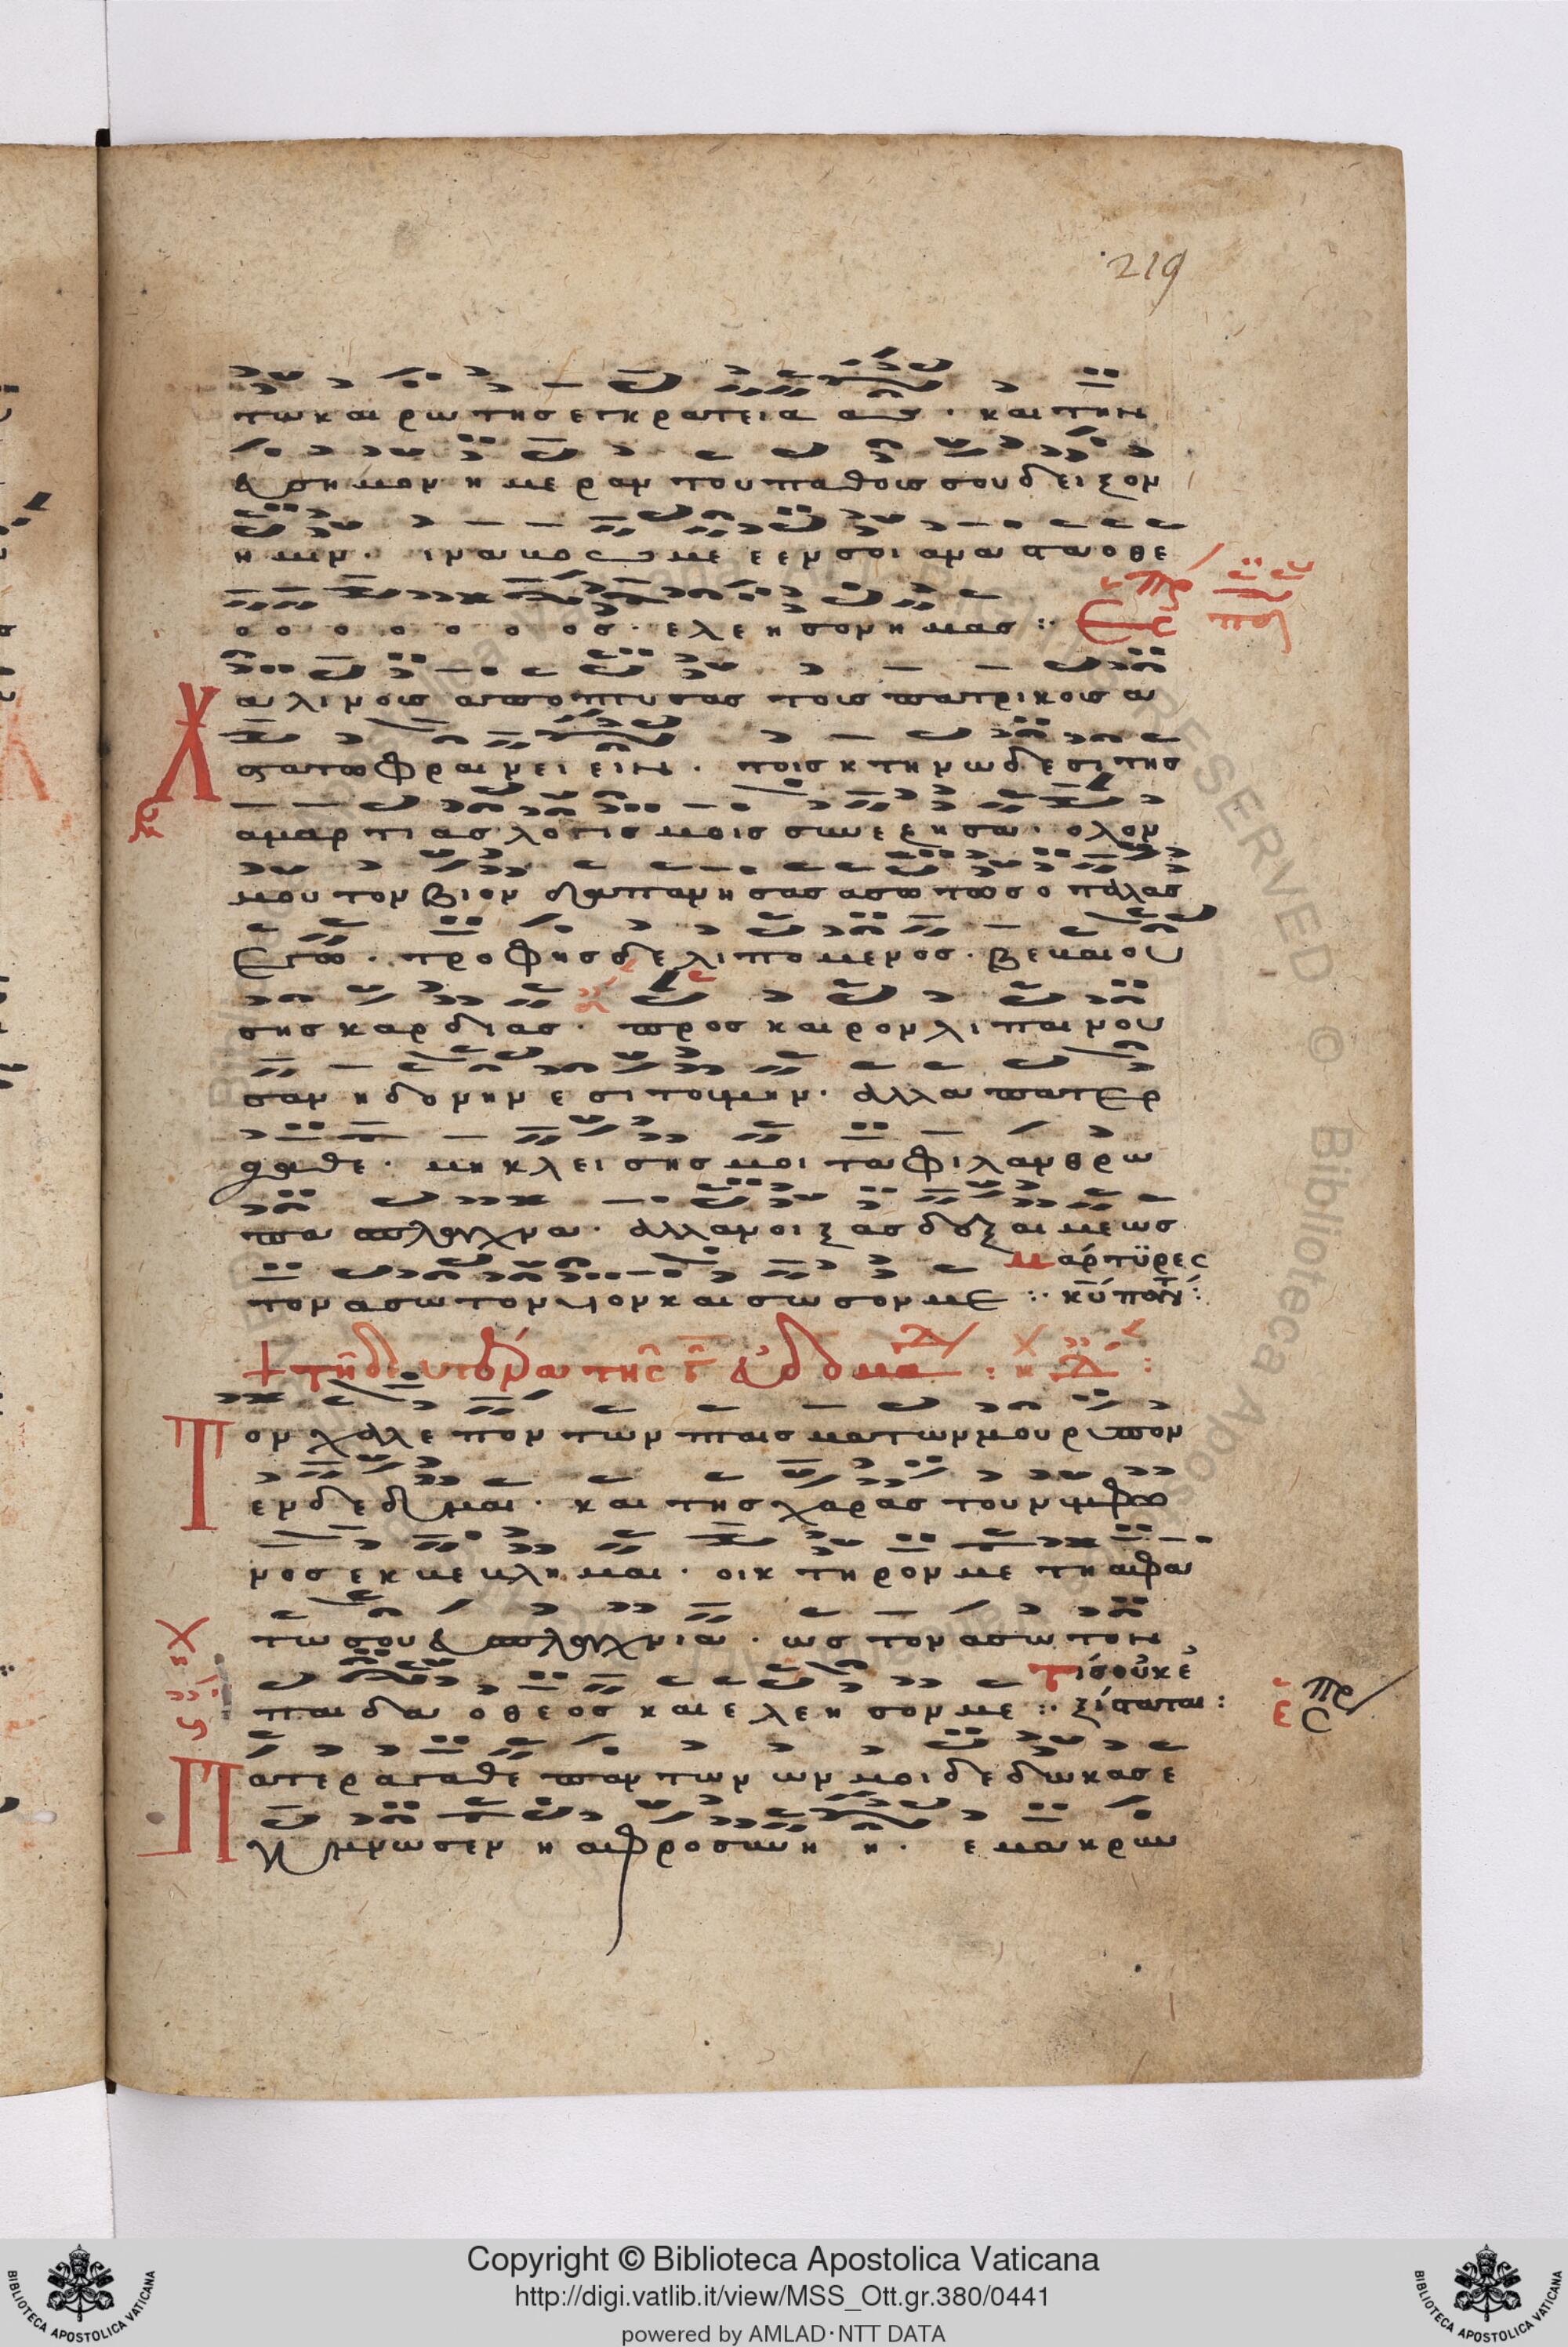 219
τω και ρω της εγκρατεια ας · και την
ευσημον ημεραν του παθους σου δειξον
ημιν · ινα κρα με ε εν σοι αναστας ο θε
ο ο ο ο ο ο ο ος · ελεησον ημας :·
Χαλινους αποπτυσας τους πατρικους α
στατω φραι νει ει ην · τοις κτηνωδεσι της
αμαρτιας λογισμοις συνεζησα · ολον
μου τον βιον δαπανησας ασωτως ο ταλας
εγω · τροφης δε λιπομενος · βεβαιου
σης καρδιας · προς καιρον λιπαινου
σαν ηδονην εσιτουμην · αλλα πατερ
αγαθε · μη κλεισης μοι τα φιλανθρω
πα σπλαγχνα · αλλ ανοιξας δεξαι με ως
Μάρτυρες
τον ασωτον υιον και σωσον με :·
+ τη δευτέρα της γ εβδομα : η :
Τον χαλεπον των πταισματων μου ρυπον
ενδεδυμαι · και της χαρας του νυμφω
νος εκβεβλημαι · οικτηρον με τη αφα
τω σου ευσπλαγχνια · ως τον ασωτον
Τί σοῦ κε
παιδα ο θεος και ελεησον με :·
Πατερ αγαθε παντων ων μοι δεδωκας ε
γυμνωσεν η αφροσυνη η · εμακρυν
Copyright © Biblioteca Apostolica Vaticana
http://digi.vatlib.it/view/MSS_Ott.gr.380/0441
powered by AMLAD·NTT DATA
BIBLIOTECA APOSTOLICA VATICANA
BIBLIOTECA APOSTOLICA VATICANA